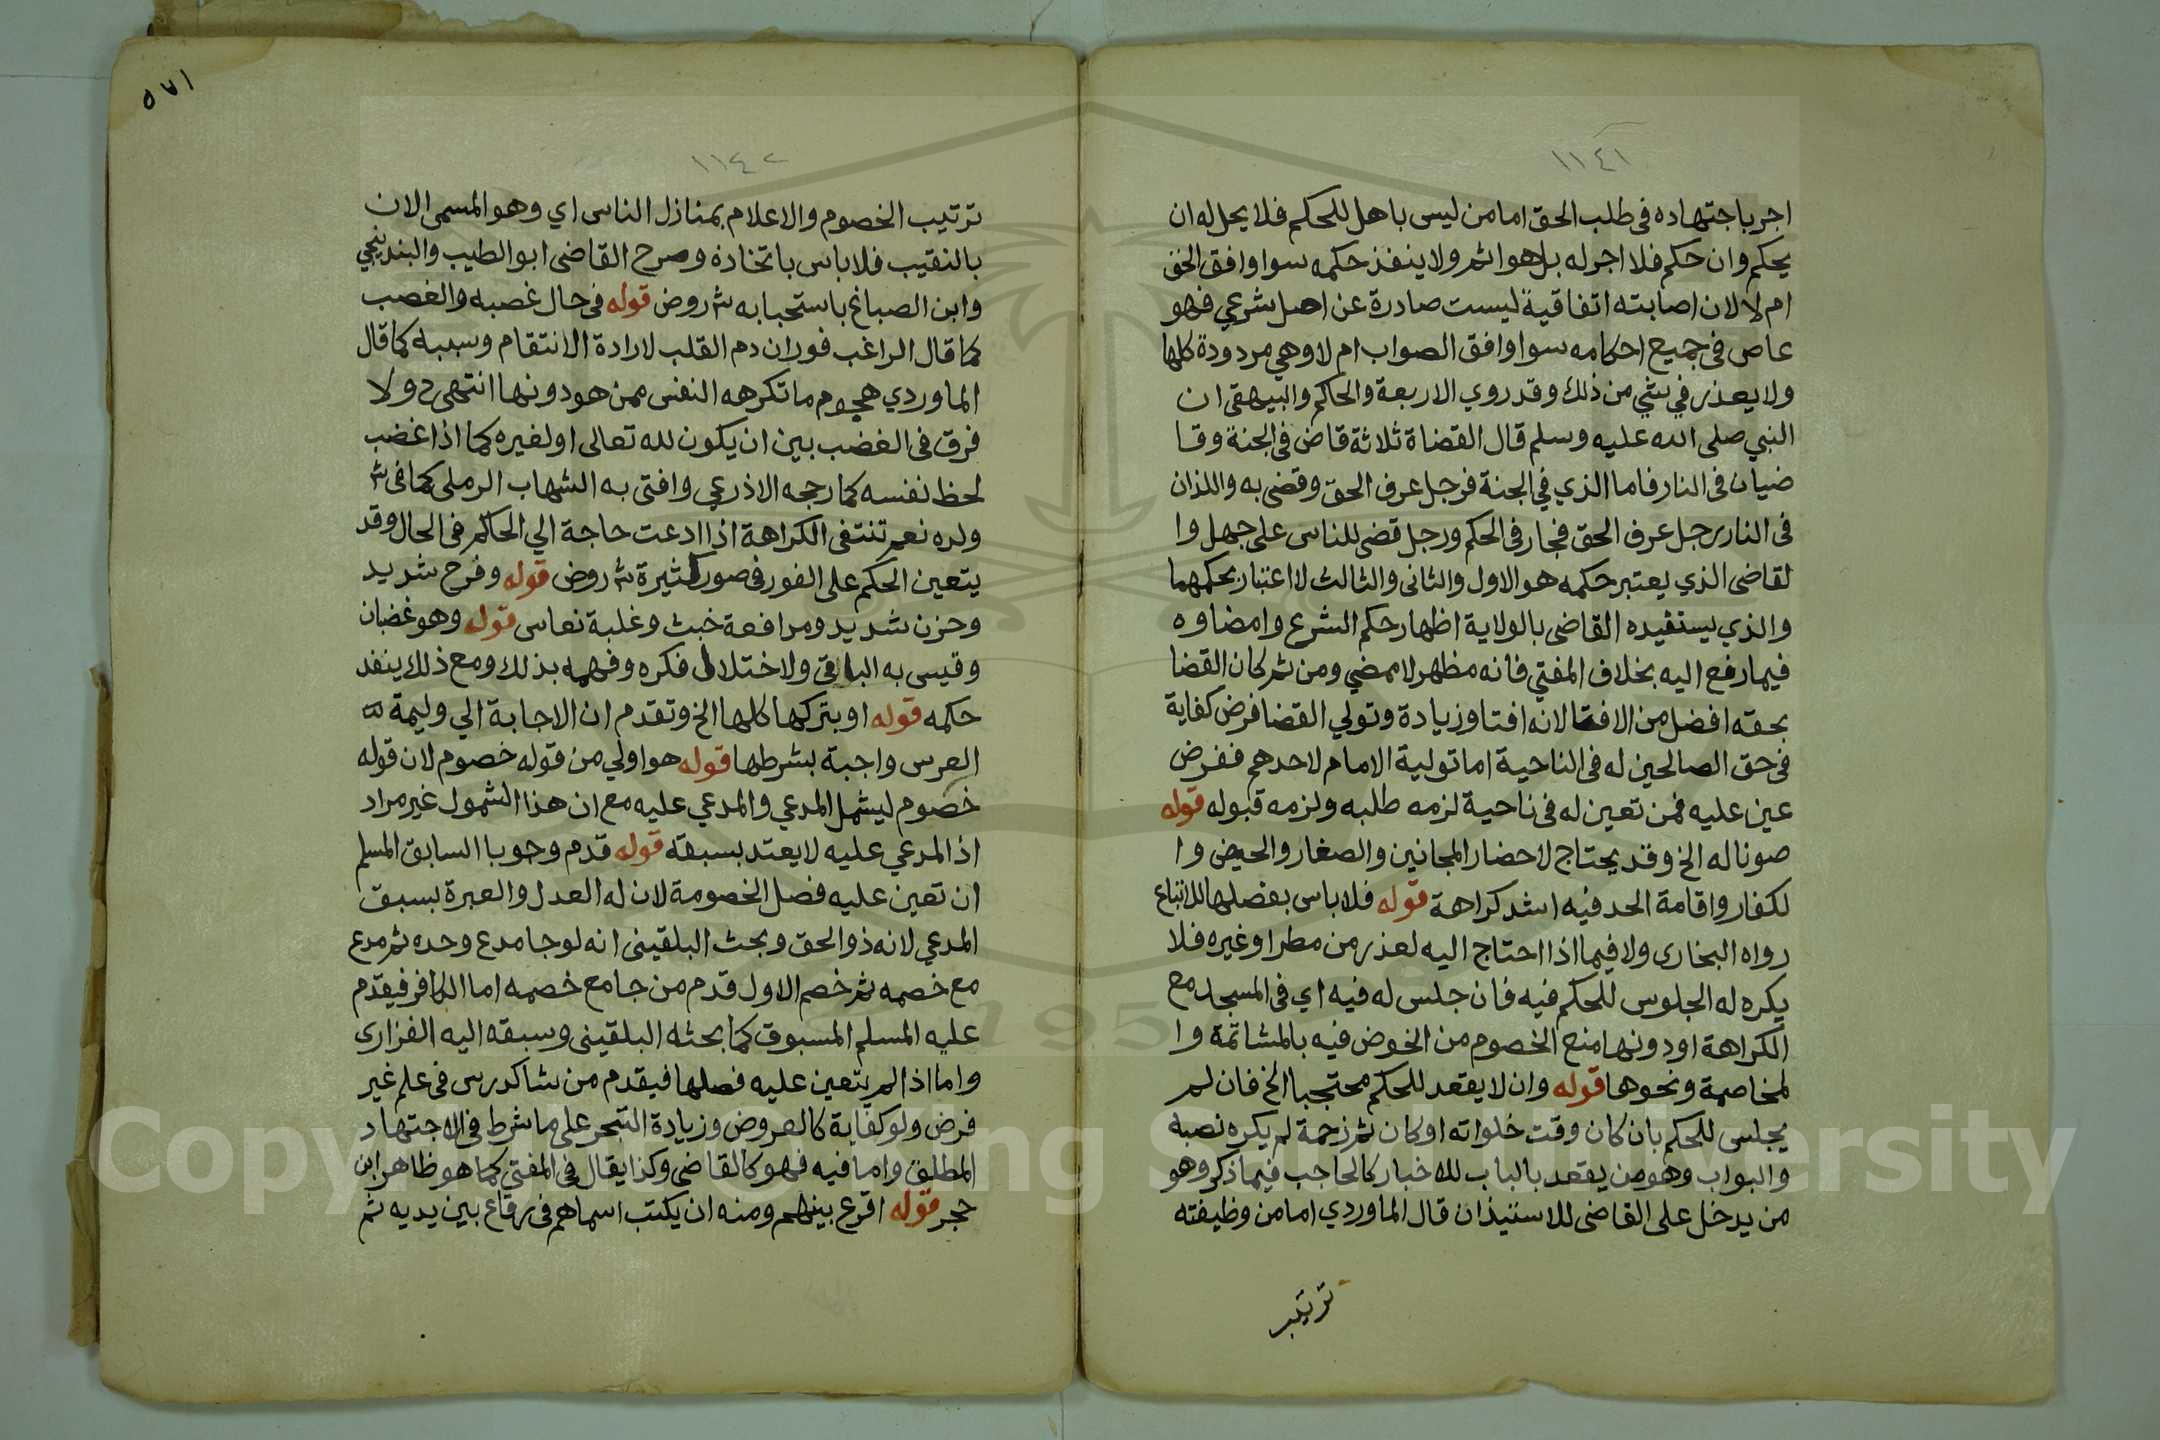 ١١٤١
اجر باجتهاده فى طلب الحق اما من ليس باهل للحكم فلا يحل له ان
يحكم وان حكم فلا اجر له بل هو اثم ولا ينفذ حكمه سوا وافق الحق
ام لا لان اصابته اتفاقية ليست صادرة عن اصل شرعي فهو
عاص فى جميع احكامه سوا وافق الصواب ام لا وهي مردودة كلها
ولا يعذر في شي من ذلك وقد روي الاربعة والحاكم والبيهقى ان
النبي صلى الله عليه وسلم قال القضاة ثلاثة قاض فى الجنة وقا
ضيان فى النار فاما الذي في الجنة فرجل عرف الحق وقضى به واللذان
فى النار رجل عرف الحق فجار فى الحكم ورجل قضى للناس على جهل وا
لقاضى الذي يعتبر حكمه هو الاول والثانى والثالث لا اعتبار بحكمهما
والذي يستفيده القاضى بالولاية اظهار حكم الشرع وامضاوه
فيما رفع اليه بخلاف المفتي فانه مظهر لا ممضي ومن ثم كان القضا
بحقه افضل من الافتا لانه افتا وزيادة وتولي القضا فرض كفاية
فى حق الصالحين له فى الناحية اما تولية الامام لاحدهم ففرض
عين عليه فمن تعين له فى ناحية لزمه طلبه ولزمه قبوله قوله
صونا له الخ وقد يحتاج لاحضار المجانين والصغار والحيض وا
لكفار واقامة الحد فيه اشد كراهة قوله فلا باس بفصلها للاتباع
رواه البخارى ولا فيما اذا احتاج اليه لعذر من مطر او غيره فلا
يكره له الجلوس للحكم فيه فان جلس له فيه اي فى المسجد مع
الكراهة او دونها منع الخصوم من الخوض فيه بالمشاتمة وا
لمخاصمة ونحوها قوله وان لا يقعد للحكم محتجبا الخ فان لم
يجلس للحكم بان كان وقت خلواته او كان ثم زحمة لم يكره نصبه
والبواب وهو من يقعد بالباب للاخبار كالحاجب فيما ذكر وهو
من يدخل على القاضى للاستيذان قال الماوردي اما من وظيفته
ترتيب
٥٧١
١١٤٢
ترتيب الخصوم والاعلام بمنازل الناس اي وهو المسمى الان
بالنقيب فلا باس باتخاذه وصرح القاضى ابو الطيب والبندنيجي
وابن الصباغ باستحبابه شروض قوله فى حال غضبه والغضب
كما قال الراغب فوران دم القلب لارادة الانتقام وسببه كما قال
الماوردي هجوم ما تكرهه النفس ممن هو دونها انتهى ح ولا
فرق فى الغضب بين ان يكون لله تعالى او لغيره كما اذا غضب
لحظ نفسه كما رجحه الاذرعي وافتى به الشهاب الرملى كما فى ش
ولده نعم تنتفى الكراهة اذا ادعت حاجة الي الحكم فى الحال وقد
يتعين الحكم على الفور فى صور كثيرة ش روض قوله وفرح شديد
وحزن شديد ومرافعة خبث وغلبة نعاس قوله وهو غضبان
وقيس به الباقى ولاختلال فكره وفهمه بذلك ومع ذلك ينفذ
حكمه قوله او بتركها كلها الخ وتقدم ان الاجابة الي وليمة
العرس واجبة بشرطها قوله هو اولي من قوله خصوم لان قوله
خصوم ليشمل المدعي والمدعي عليه مع ان هذا الشمول غير مراد
اذ المدعي عليه لا يعتد بسبقه قوله قدم وجوبا السابق المسلم
ان تعين عليه فصل الخصومة لان له العدل والعبرة بسبق
المدعي لانه ذو الحق وبحث البلقينى انه لو جا مدع وحده ثم مدع
مع خصمه ثم خصم الاول قدم من جا مع خصمه اما الكافر فيقدم
عليه المسلم المسبوق كما بحثه البلقينى وسبقه اليه الفزارى
واما اذا لم يتعين عليه فصلها فيقدم من شا كدرس فى علم غير
فرض ولو كفاية كالعروض وزيادة التبحر على ما شرط فى الاجتهاد
المطلق واما فيه فهو كالقاضى وكذا يقال فى المفتي كما هو ظاهر ابن
حجر قوله اقرع بينهم ومنه ان يكتب اسماهم فى رقاع بين يديه ثم
Copyright © King Saud University
1957